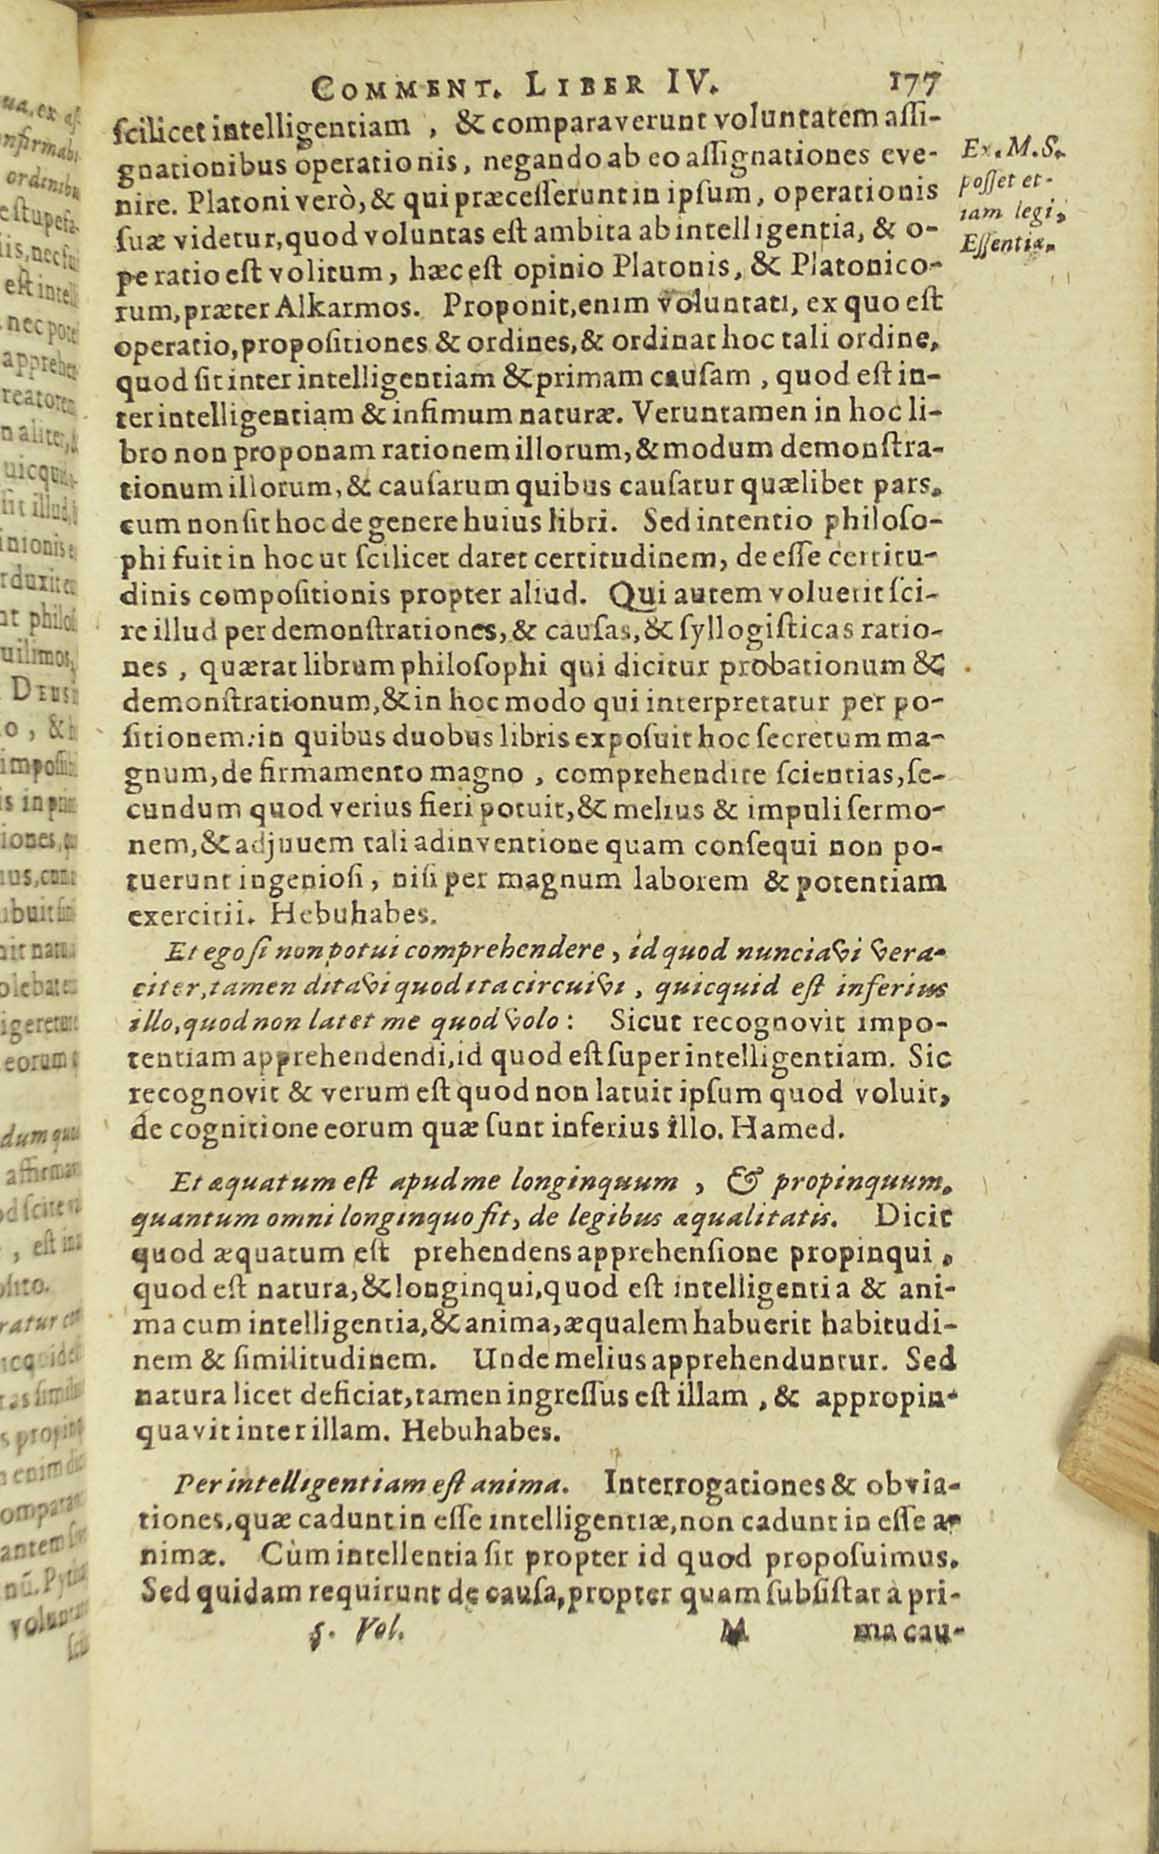 COMMENT. LIBER IV. 177
scilicet intelligentiam, & comparaverunt voluntatem assi-
gnationibus operationis, negando ab eo assignationes eve-
nire. Platoni verò, & qui præcesserunt in ipsum, operationis
suæ videtur, quod voluntas est ambita ab intelligentia, & o-
peratio est volitum, hæc est opinio Platonis, & Platonico-
rum, præter Alkarmos. Proponit, enim voluntati, ex quo est
operatio, propositiones & ordines, & ordinat hoc tali ordine,
quod sit inter intelligentiam & primam causam, quod est in-
ter intelligentiam & infimum naturæ. Veruntamen in hoc li-
bro non proponam rationem illorum, & modum demonstra-
tionum illorum, & causarum quibus causatur quælibet pars,
cum non sit hoc de genere huius libri. Sed intentio philoso-
phi fuit in hoc ut scilicet daret certitudinem, de esse certitu-
dinis compositionis propter aliud. Qui autem voluerit sci-
re illud per demonstrationes, & causas, & syllogisticas ratio-
nes, quærat librum philosophi qui dicitur probationum &
demonstrationum, & in hoc modo qui interpretatur per po-
sitionem: in quibus duobus libris exposuit hoc secretum ma-
gnum, de firmamento magno, comprehendite scientias, se-
cundum quod verius fieri potuit, & melius & impuli sermo-
nem, & adjuuem tali adinventione quam consequi non po-
tuerunt ingeniosi, nisi per magnum laborem & potentiam
exercitii. Hebuhabes.
Et ego si non potui comprehendere, id quod nunciavi vera-
citer, tamen ditavi quod ita circuivi, quicquid est inferius
illo, quod non latet me quod volo: Sicut recognovit impo-
tentiam apprehendendi, id quod est super intelligentiam. Sic
recognovit & verum est quod non latuit ipsum quod voluit,
de cognitione eorum quæ sunt inferius illo. Hamed.
Et æquatum est apud me longinquum, & propinquum,
quantum omni longinquo fit, de legibus æqualitatis. Dicit
quod æquatum est prehendens apprehensione propinqui,
quod est natura, & longinqui, quod est intelligentia & ani-
ma cum intelligentia, & anima, æqualem habuerit habitudi-
nem & similitudinem. Unde melius apprehenduntur. Sed
natura licet deficiat, tamen ingressus est illam, & appropin-
quavit inter illam. Hebuhabes.
Per intelligentiam est anima. Interrogationes & obvia-
tiones, quæ cadunt in esse intelligentiæ, non cadunt in esse a-
nimæ. Cùm intellentia sit propter id quod proposuimus.
Sed quidam requirunt de causa, propter quam subsistat à pri-
5. Vol. M ma cau-
Ex. M.S.
posset et-
iam legi,
Essentiæ.